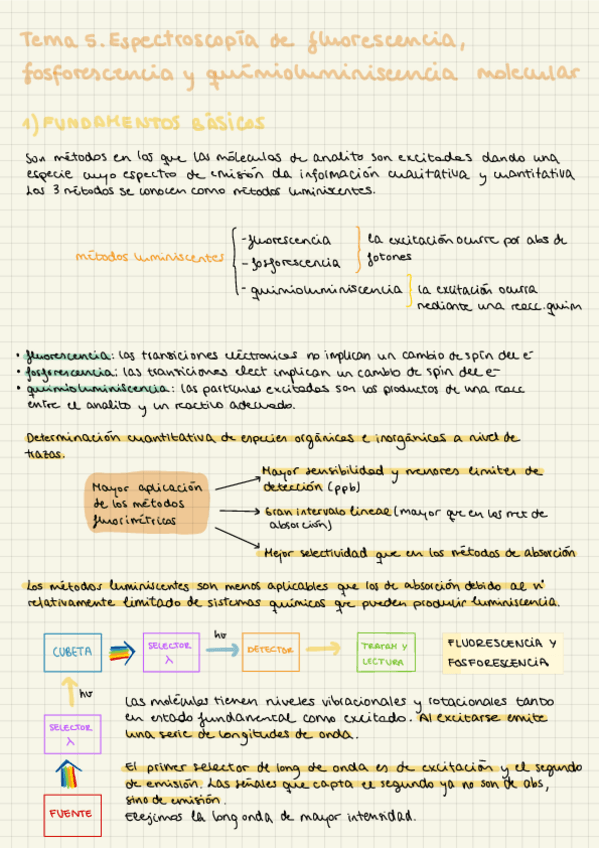 Tema 5. Espectroscopía de fluorescencia,
fosforescencia y químioluminiscencia molecular
1) FUNDAMENTOS BÁSICOS
Son métodos en los que las móleculas de analito son excitadas dando una
especie cuyo espectro de emisión da información cualitativa y cuantitativa
Los 3 métodos se conocen como métodos luminiscentes.
métodos luminiscentes
- fluorescencia
- fosforescencia
la excitación ocurre por abs de
fotones
- quimioluminiscencia
la excitación ocurra
mediante una reacc. quim
• fluorescencia: las transiciones eléctronicas no implican un cambio de spin del e-
• fosforescencia: las transiciones elect implican un cambio de spin del e-
• quimioluminiscencia: las partículas excitadas son los productos de una reacc
entre el analito y un reactivo adecuado.
Determinación cuantitativa de especies orgánicas e inorgánicas a nivel de
trazas.
Mayor aplicación
de los métodos
fluorimétricos
Mayor sensibilidad y menores limites de
detección (ppb)
Gran intervalo lineal (mayor que en los met de
absorción)
Mejor selectividad que en los métodos de absorción
Los métodos luminiscentes son menos aplicables que los de absorción debido al nº
relativamente limitado de sistemas químicos que pueden producir luminiscencia.
CUBETA
SELECTOR
λ
hν
DETECTOR
TRATAM Y
LECTURA
FLUORESCENCIA Y
FOSFORESCENCIA
hν
SELECTOR
λ
FUENTE
Las moléculas tienen niveles vibracionales y rotacionales tanto
en estado fundamental como excitado. Al excitarse emite
una serie de longitudes de onda.
El primer selector de long de onda es de excitación y el segundo
de emisión. Las señales que capta el segundo ya no son de abs,
sino de emisión.
Elejimos la long onda de mayor intensidad.